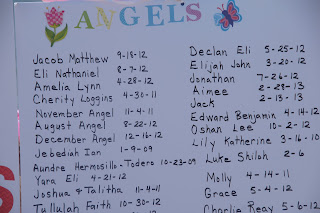 ANGELS
Jacob Matthew 9-18-12
Eli Nathaniel 8-7-12
Amelia Lynn 4-28-12
Cherity Loggins 4-30-11
November Angel 11-4-11
August Angel 8-22-12
December Angel 12-16-12
Jebediah Ian 1-9-09
Aundre Hermosillo-Todero 10-23-09
Yara Eli 4-21-12
Joshua & Talitha 11-4-11
Tullulah Faith 10-30-12
Declan Eli 5-25-12
Elijah John 3-20-12
Jonathan 7-26-12
Aimee 2-28-13
Jack 2-13-13
Edward Benjamin 4-14-12
Oshan Lee 10-2-12
Lily Katherine 3-16-10
Luke Shiloh 2-6
Molly 4-14-11
Grace 5-4-12
Charlie Reay 5-6-12